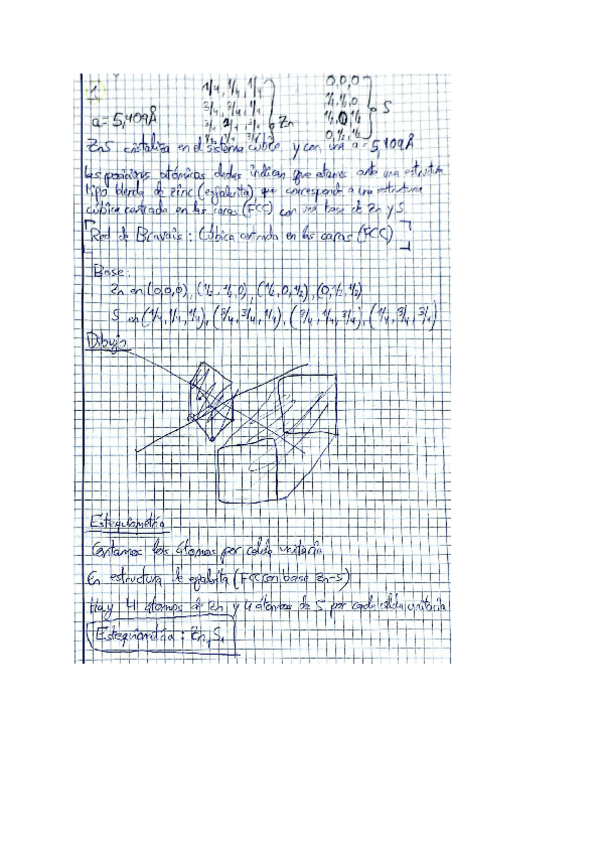 1.
1/4, 1/4, 1/4
3/4, 3/4, 1/4
Zn
0,0,0
1/2, 1/2, 0
1/2, 0, 1/2
0, 1/2, 1/2
S
a = 5,409Å
ZnS cristaliza en el sistema cúbico y con una a = 5,409Å
Las posiciones atómicas dadas indican que estamos ante una estructura
tipo blenda de zinc (esfalerita) que corresponde a una estructura
cúbica centrada en las caras (FCC) con una base de Zn y S.
Red de Bravais: Cúbica centrada en las caras (FCC)
Base:
Zn en (0,0,0), (1/2, 1/2, 0), (1/2, 0, 1/2), (0, 1/2, 1/2)
S en (1/4, 1/4, 1/4), (3/4, 3/4, 1/4), (3/4, 1/4, 3/4), (1/4, 3/4, 3/4)
Dibujo
Estequiometría
Contamos los átomos por celda unitaria
En estructura de esfalerita (FCC con base Zn-S)
Hay 4 átomos de Zn y 4 átomos de S por cada celda unitaria
Estequiometría: Zn1S1